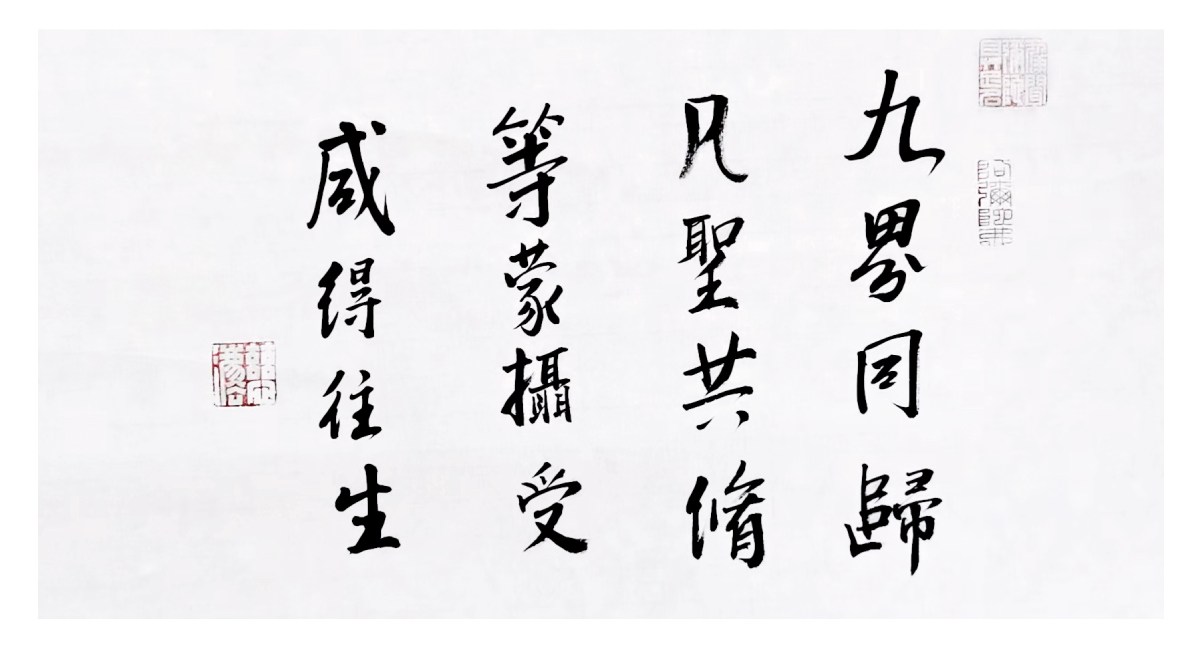 九界同歸
凡聖共脩
等蒙攝受
咸得往生